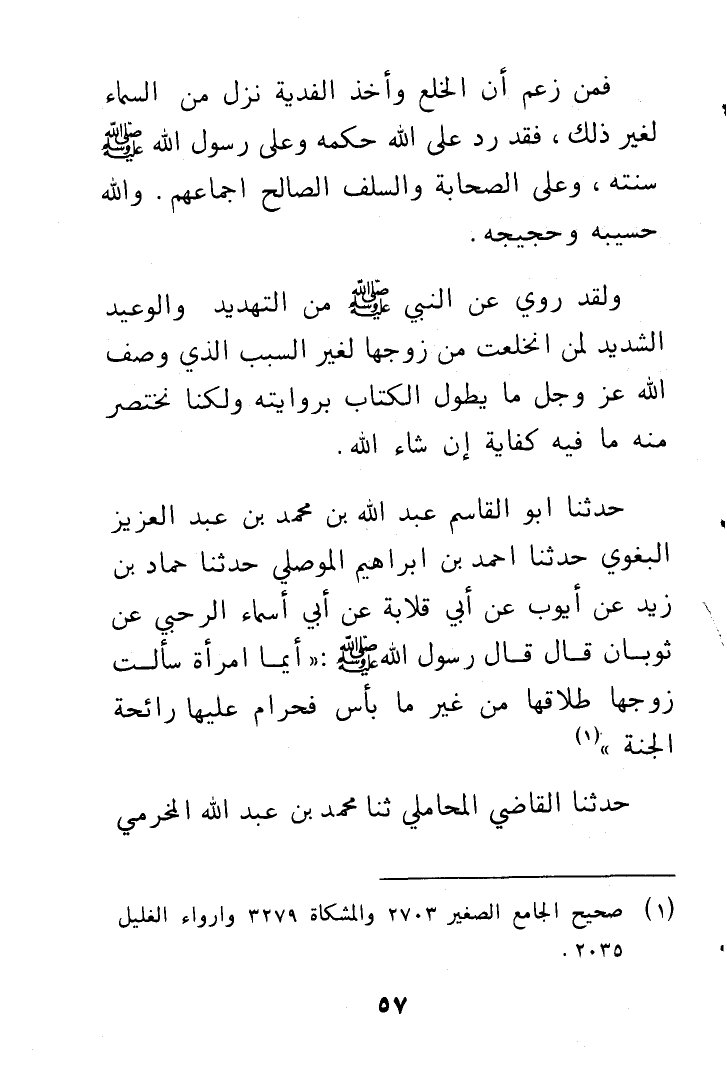 فمن زعم أن الخلع وأخذ الفدية نزل من السماء
لغير ذلك ، فقد رد على الله حكمه وعلى رسول الله ﷺ
سنته ، وعلى الصحابة والسلف الصالح اجماعهم . والله
حسيبه وحجيجه .
ولقد روي عن النبي ﷺ من التهديد والوعيد
الشديد لمن انخلعت من زوجها لغير السبب الذي وصف
الله عز وجل ما يطول الكتاب بروايته ولكنا نختصر
منه ما فيه كفاية إن شاء الله .
حدثنا ابو القاسم عبد الله بن محمد بن عبد العزيز
البغوي حدثنا احمد بن ابراهيم الموصلي حدثنا حماد بن
زيد عن أيوب عن أبي قلابة عن أبي أسماء الرحبي عن
ثوبــان قــال قــال رسول الله ﷺ :« أيمـا امرأة سألــت
زوجها طلاقها من غير ما بأس فحرام عليها رائحة
الجنة »(١)
حدثنا القاضي المحاملي ثنا محمد بن عبد الله المخرمي
(١) صحيح الجامع الصغير ٢٧٠٣ والمشكاة ٣٢٧٩ وارواء الغليل
٢٠٣٥ .
٥٧